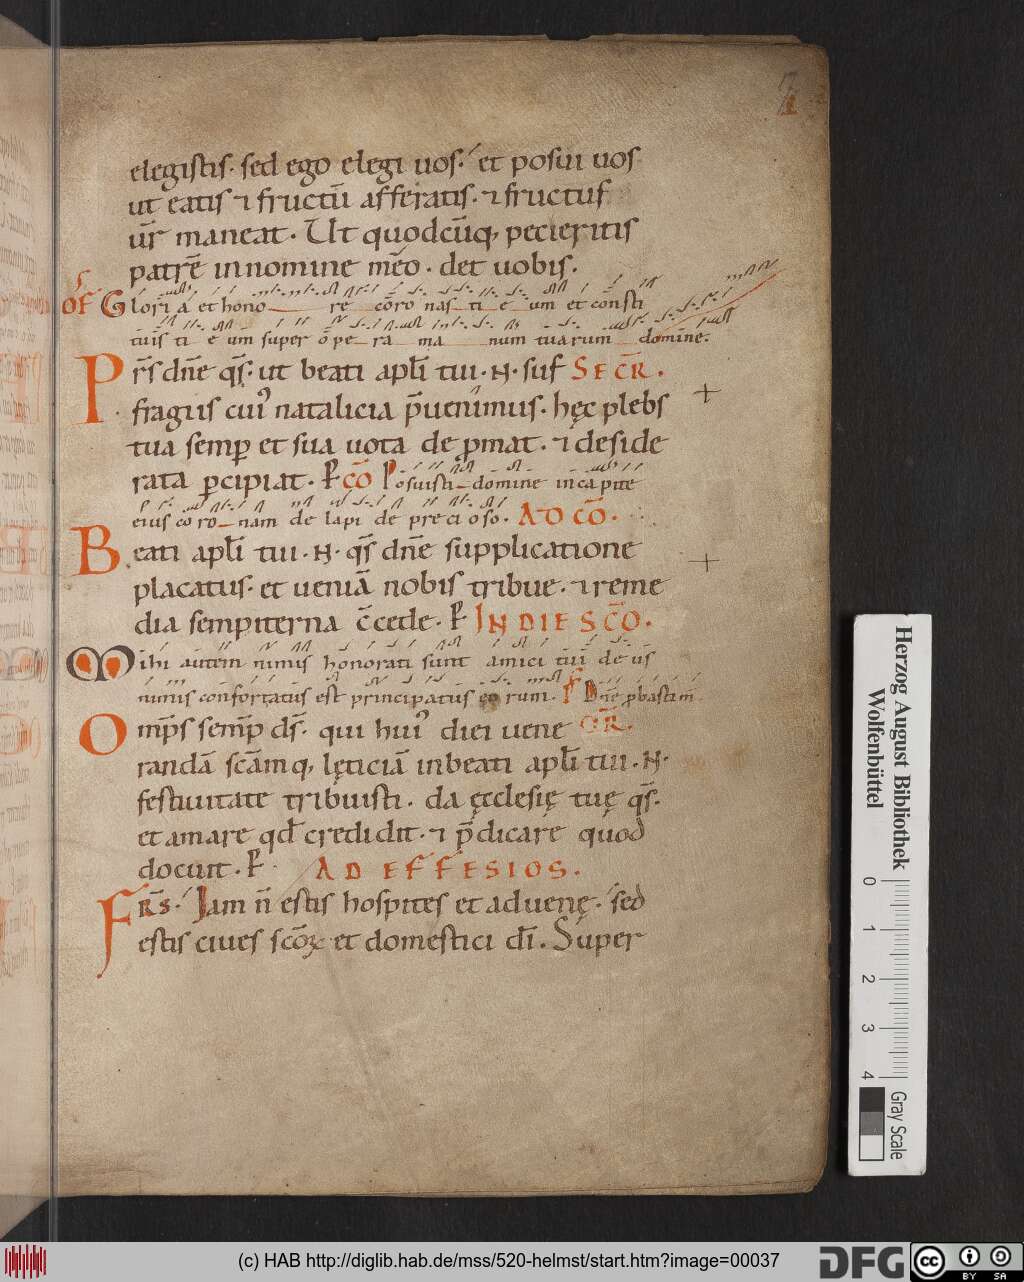 elegistis. sed ego elegi uos. et posui uos
ut eatis ⁊ fructū afferatis. ⁊ fructus
ur̄ maneat. Ut quodcūq, pecieritis
patrē innomine meo. det uobis.
of Gloria et hono re coro nas ti e um et consti
tuis ti e um super ope ra ma num tuarum domine.
Pr̄s dn̄e qs̄. ut beati apl̄i tui .N. suf SECR̄.
fragiis cui᾽ natalicia p̄uenimus. hęc plebs
tua semꝑ et sua uota deꝓmat. ⁊ deside
rata ꝑcipiat. P̄ CŌ Posuisti domine in capite
eius co ro nam de lapi de preci oso. AD CŌ.
Beati apl̄i tui .N. qs̄ dn̄e supplicatione
placatus. et ueniā nobis tribue. ⁊ reme
dia sempiterna c̄cede. P̄ IN DIE SC̄O.
Mihi autem nimis honorati sunt amici tui deus
nimis confortatus est principatus eo rum. P̄ Dn̄e ꝓbasti m̄
Omps̄ semp̄ ds̄. qui hui᾽ diei uene OR̄.
randā scāmq, lęticiā inbeati apl̄i tui .N.
festiuitate tribuisti. da ęcclesię tuę qs̄.
et amare qd̄ credidit. ⁊ p̄dicare quod
docuit. P̄ AD EFFESIOS.
FRS̄. Iam n̄ estis hospites et aduenę. sed
estis ciues scōꝝ et domestici dī. Super
Herzog August Bibliothek
Wolfenbüttel
0 1 2 3 4
Gray Scale
(c) HAB http://diglib.hab.de/mss/520-helmst/start.htm?image=00037
DFG
cc BY SA